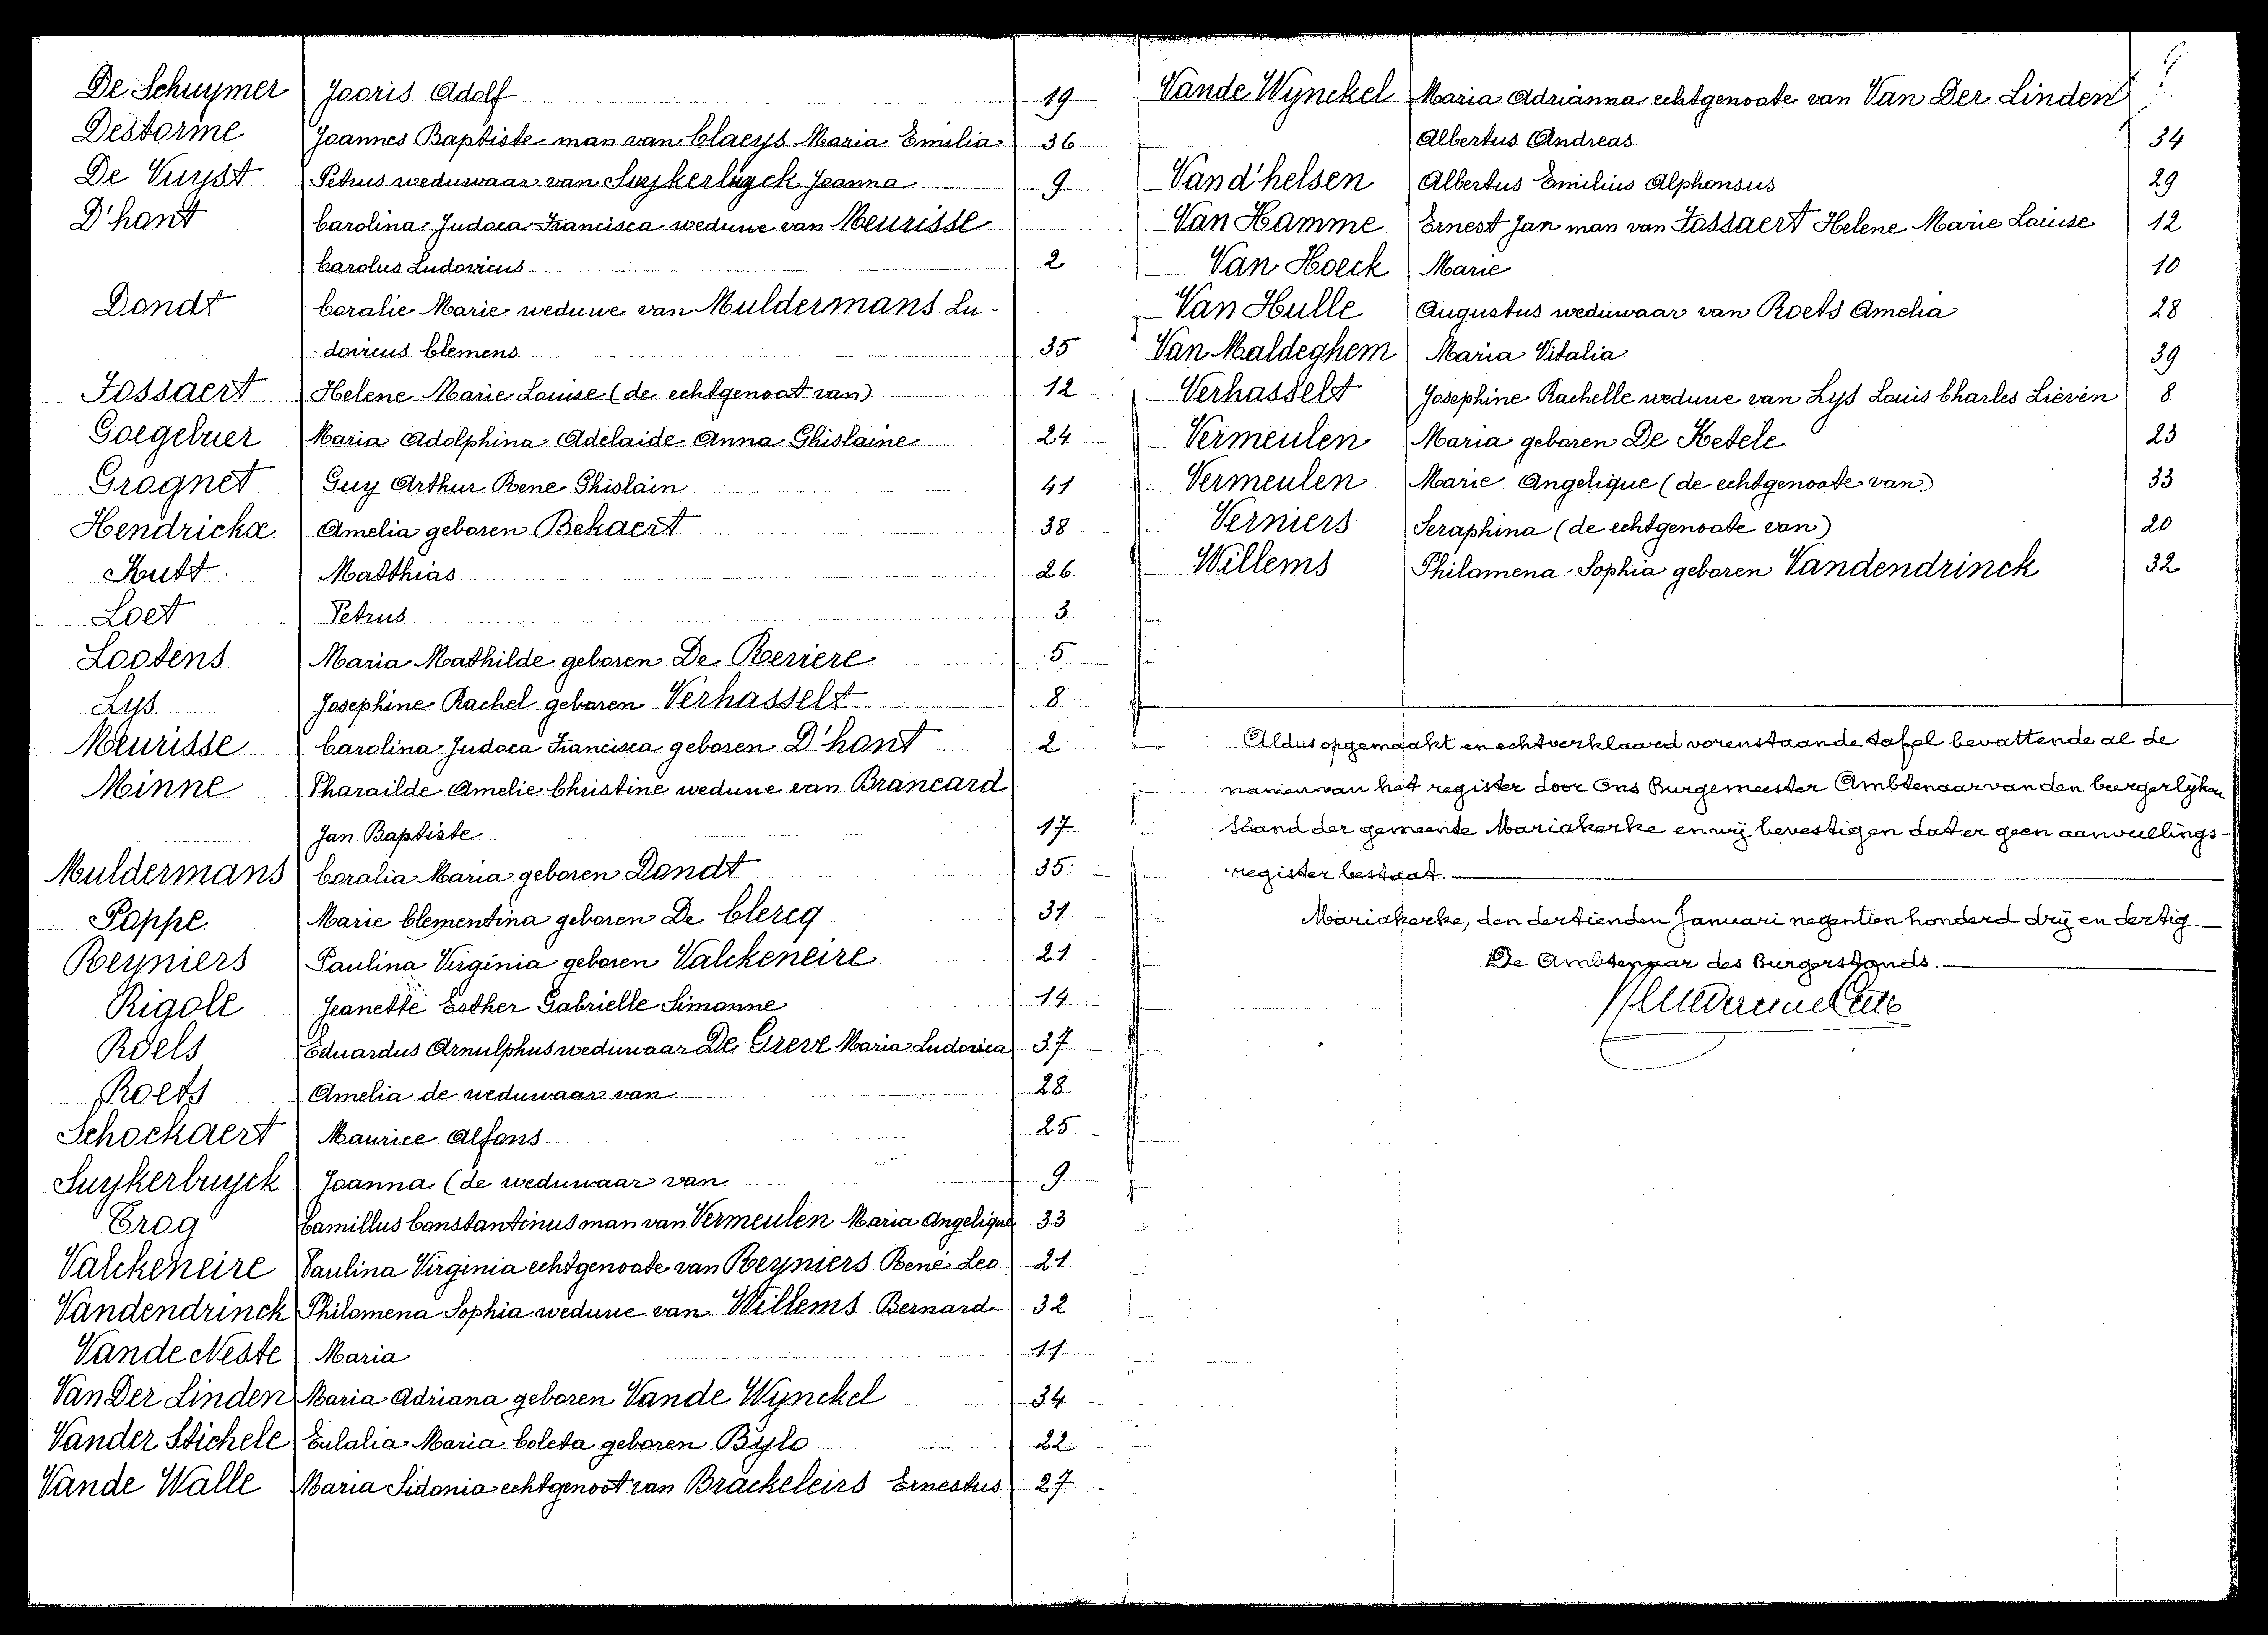 De Schuymer Jooris Adolf 19
Destorme Joannes Baptiste man van Claeys Maria Emilia 36
De Vuyst Petrus weduwaar van Suykerbuyck Joanna 9
D'hont Carolina Judoca Francisca weduwe van Meurisse
Carolus Ludovicus 2
Dondt Coralie Marie weduwe van Muldermans Lu-
-dovicus Clemens 35
Fossaert Helene Marie Louise (de echtgenoot van) 12
Goegebuer Maria Adolphina Adelaide Anna Ghislaine 24
Grognet Guy Arthur Rene Ghislain 41
Hendrickx Amelia geboren Bekaert 38
Kutt Matthias 26
Loet Petrus 3
Lootens Maria Mathilde geboren De Reviere 5
Lys Josephine Rachel geboren Verhasselt 8
Meurisse Carolina Judoca Francisca geboren D'hont 2
Minne Pharaïlde Amelie Christine weduwe van Brancard
Jan Baptiste 17
Muldermans Coralia Maria geboren Dondt 35
Poppe Marie Clementina geboren De Clercq 31
Reyniers Paulina Virginia geboren Valckeneire 21
Rigole Jeanette Esther Gabrielle Simonne 14
Roels Eduardus Arnulphus weduwaar De Greve Maria Ludovica 37
Roets Amelia de weduwaar van 28
Schockaert Maurice Alfons 25
Suykerbuyck Joanna (de weduwaar van 9
Crog Camillus Constantinus man van Vermeulen Maria Angelique 33
Valckeneire Paulina Virginia echtgenoote van Reyniers René Leo 21
Vandendrinck Philomena Sophia weduwe van Willems Bernard 32
Vande Neste Maria 11
Van Der Linden Maria Adriana geboren Vande Wynckel 34
Vander Stichele Eulalia Maria Coleta geboren Bylo 22
Vande Walle Maria Sidonia echtgenoot van Brackeleirs Ernestus 27
Vande Wynckel Maria Adrianna echtgenoote van Van Der Linden
Albertus Andreas 34
Vand'helsen Albertus Emilius Alphonsus 29
Van Hamme Ernest Jan man van Fossaert Helene Marie Louise 12
Van Hoeck Marie 10
Van Hulle Augustus weduwaar van Roets Amelia 28
Van Maldeghem Maria Vitalia 39
Verhasselt Josephine Rachelle weduwe van Lys Louis Charles Lieven 8
Vermeulen Maria geboren De Ketele 23
Vermeulen Marie Angelique (de echtgenoote van) 33
Verniers Seraphina (de echtgenoote van) 20
Willems Philomena Sophia geboren Vandendrinck 32
Aldus opgemaakt en echt verklaard vorenstaande tafel bevattende al de
namen van het register door Ons Burgemeester Ambtenaar van den burgerlyken
Stand der gemeente Mariakerke en wij bevestigen dat er geen aanvullings-
register bestaat.
Mariakerke, den dertienden Januari negentien honderd drij en dertig.
De Ambtenaar des Burgerstands.